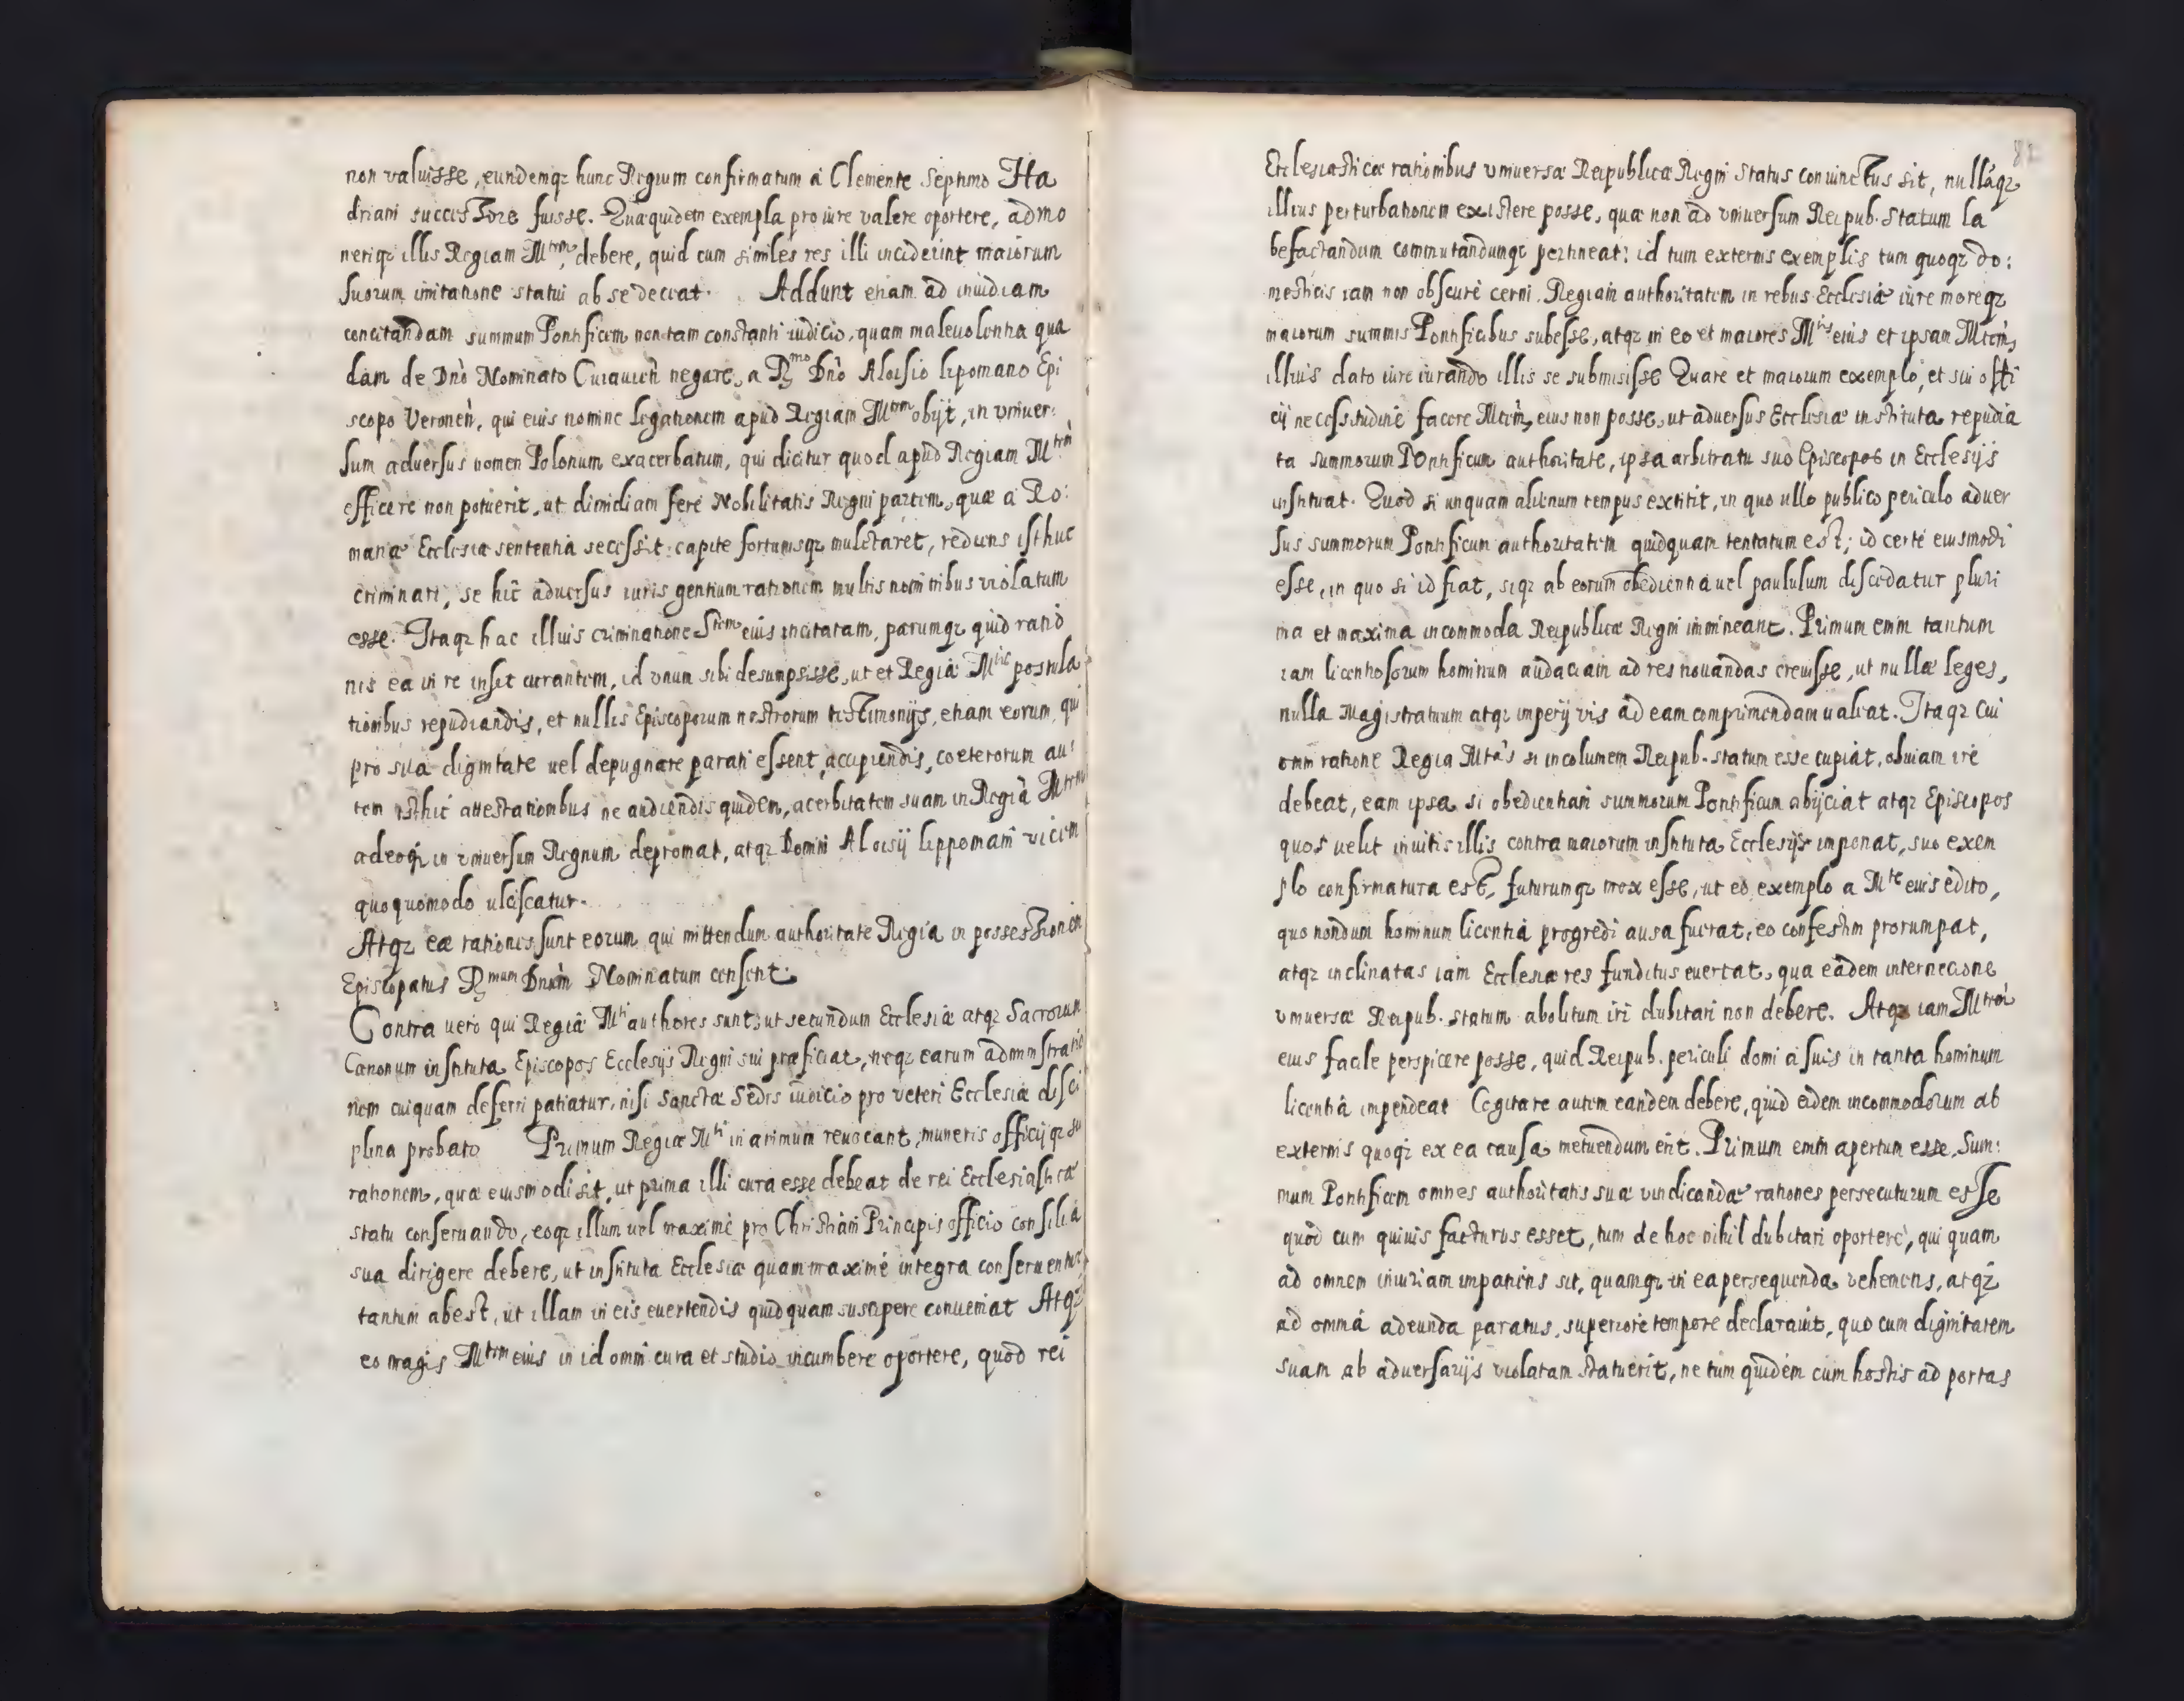 non valuisse, eundemqz hunc Regium confirmatum à Clemente Septimo Ha
driani successore fuisse. Quæ quidem exempla pro iure valere oportere, admo
neriqz illis Regiam Mtem debere, quid cum similes res illi inciderint maiorum
suorum imitatione statui ab se deceat. Addunt etiam ad inuidiam
concitandam summum Pontificem non tam constanti iudicio, quam maleuolentia qua
dam de Dnò Nominato Cuiauien̄ negare, a Rmo Dnò Aloisio Lipomano Epi
scopo Veronen̄, qui eius nomine legationem apud Regiam Mtem obijt, in vniuer:
sum aduersus nomen Polonum exacerbatum, qui dicitur quod apud Regiam Mtem
efficere non potuerit, ut dimidiam ferè Nobilitatis Regni partem, quæ à Ro:
manæ Ecclesiæ sententia secessit, capite fortunisqz mulctaret, rediens isthuc
criminari, se hîc aduersus iuris gentium rationem multis nominibus violatum
esse. Itaqz hac illius criminatione Stem eius incitatam, parumqz quid ratio
nis ea in re insit curantem, id vnum sibi desumpsisse, ut et Regiæ Mtis postula
tionibus repudiandis, et nullis Episcoporum nostrorum testimonijs, etiam eorum, qui
pro sua dignitate uel depugnare parati essent, accipiendis, coeterorum au:
tem isthic attestationibus ne audiendis quidem, acerbitatem suam in Regiā Mtem
adeoqz in vniuersum Regnum depromat, atqz Domini Aloisij Lippomani vicem
quoquomodo ulciscatur.
Atqz eæ rationes sunt eorum qui mittendum authoritate Regia in possessionem
Episcopatus Rmum Dnum Nominatum censent.
Contra uero qui Regiæ Mti authores sunt, ut secundum Ecclesiæ atqz Sacrorum
Canonum instituta Episcopos Ecclesijs Regni sui præficiat, neqz earum administratio
nem cuiquam deferri patiatur, nisi Sanctæ Sedis iudicio pro veteri Ecclesiæ disci
plina probato Primum Regiæ Mti in animum reuocant, muneris officijqz sui
rationem, quæ eiusmodi sit, ut prima illi cura esse debeat de rei Ecclesiasticæ
statu conseruando, eoqz illum uel maximè pro Christiani Principis officio consilia
sua dirigere debere, ut instituta Ecclesiæ quam maximè integra conseruentur
tantum abest, ut illam in eis euertendis quidquam suscipere conueniat Atqz
eo magis Mtem eius in id omni cura et studio incumbere oportere, quod rei
Ecclesiasticæ rationibus vniuersæ Reipublicæ Regni status coniunctus sit, nullaqz
illius perturbationem existere posse, quæ non ad vniuersum Reipub. statum la
befactandum commutandumqz pertineat: id tum externis exemplis tum quoqz do:
mesticis iam non obscurè cerni. Regiam authoritatem in rebus Ecclesiæ iure moreqz
maiorum summis Pontificibus subesse, atqz in eo et maiores Mtis eius et ipsam Mtem
illius dato iure iurando illis se submisisse Quare et maiorum exemplo, et sui offi
cij necessitudine facere Mtem eius non posse, ut aduersus Ecclesiæ instituta repudia
ta summorum Pontificum authoritate, ipsa arbitratu suo Episcopos in Ecclesijs
instituat. Quod si unquam alienum tempus extitit, in quo ullo publico periculo aduer
sus summorum Pontificum authoritatem quidquam tentatum est; id certè eiusmodi
esse, in quo si id fiat, siqz ab eorum obedientia uel paululum discedatur pluri
ma et maxima incommoda Reipublicæ Regni immineant. Primum enim tantum
iam licentiosorum hominum audaciam ad res nouandas creuisse, ut nullæ leges,
nulla Magistratuum atqz imperij vis ad eam comprimendam ualeat. Itaqz cui
omni ratione Regia Mtas si incolumem Reipub. statum esse cupiat, obuiam ire
debeat, eam ipsa si obedientiam summorum Pontificum abijciat atqz Episcopos
quos uelit inuitis illis contra maiorum instituta Ecclesijs imponat, suo exem
plo confirmatura est, futurumqz mox esse, ut eo exemplo a Mte eius edito,
quo nondum hominum licentia progredi ausa fuerat, eo confestim prorumpat,
atqz inclinatas iam Ecclesiæ res funditus euertat, qua eadem internecione
vniuersæ Reipub. statum abolitum iri dubitari non debere. Atqz iam Mtem
eius facile perspicere posse, quid Reipub. periculi domi à suis in tanta hominum
licentia impendeat Cogitare autem eandem debere, quid eidem incommodorum ab
externis quoqz ex ea causa metuendum erit. Primum enim apertum esse, Sum:
mum Pontificem omnes authoritatis suæ vindicandæ rationes persecuturum esse
quod cum quiuis facturus esset, tum de hoc nihil dubitari oportere, qui quam
ad omnem iniuriam impatiens sit, quamqz in ea persequenda vehemens, atqz
ad omnia adeunda paratus, superiore tempore declarauit, quo cum dignitatem
suam ab aduersarijs violatam statuerit, ne tum quidem cum hostis ad portas